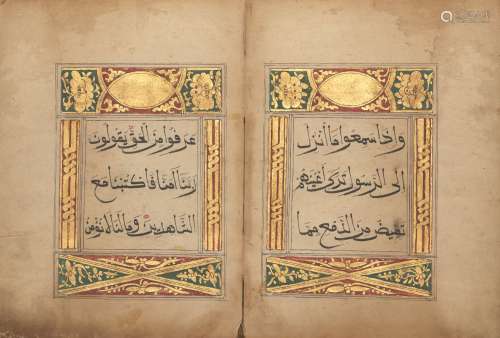 واذا سمعوا ما انزل
الى الرسول ترى اعينهم
تفيض من الدمع مما
عرفوا من الحق يقولون
ربنا امنا فاكتبنا مع
الشاهدين وما لنا لا نؤمن